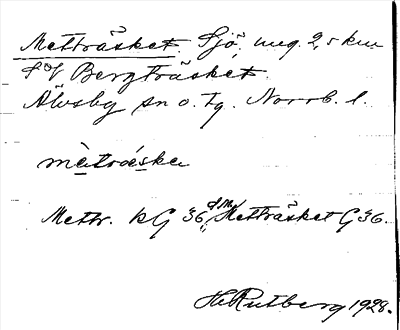 Metträsket. Sjö, ung. 2,5 km
S of Bergträsket.
Älvsby sn o. tg. Norrb. l.
mètráska
Mettr. kG 36, Metträsket G 36.
H. Rutberg 1928.